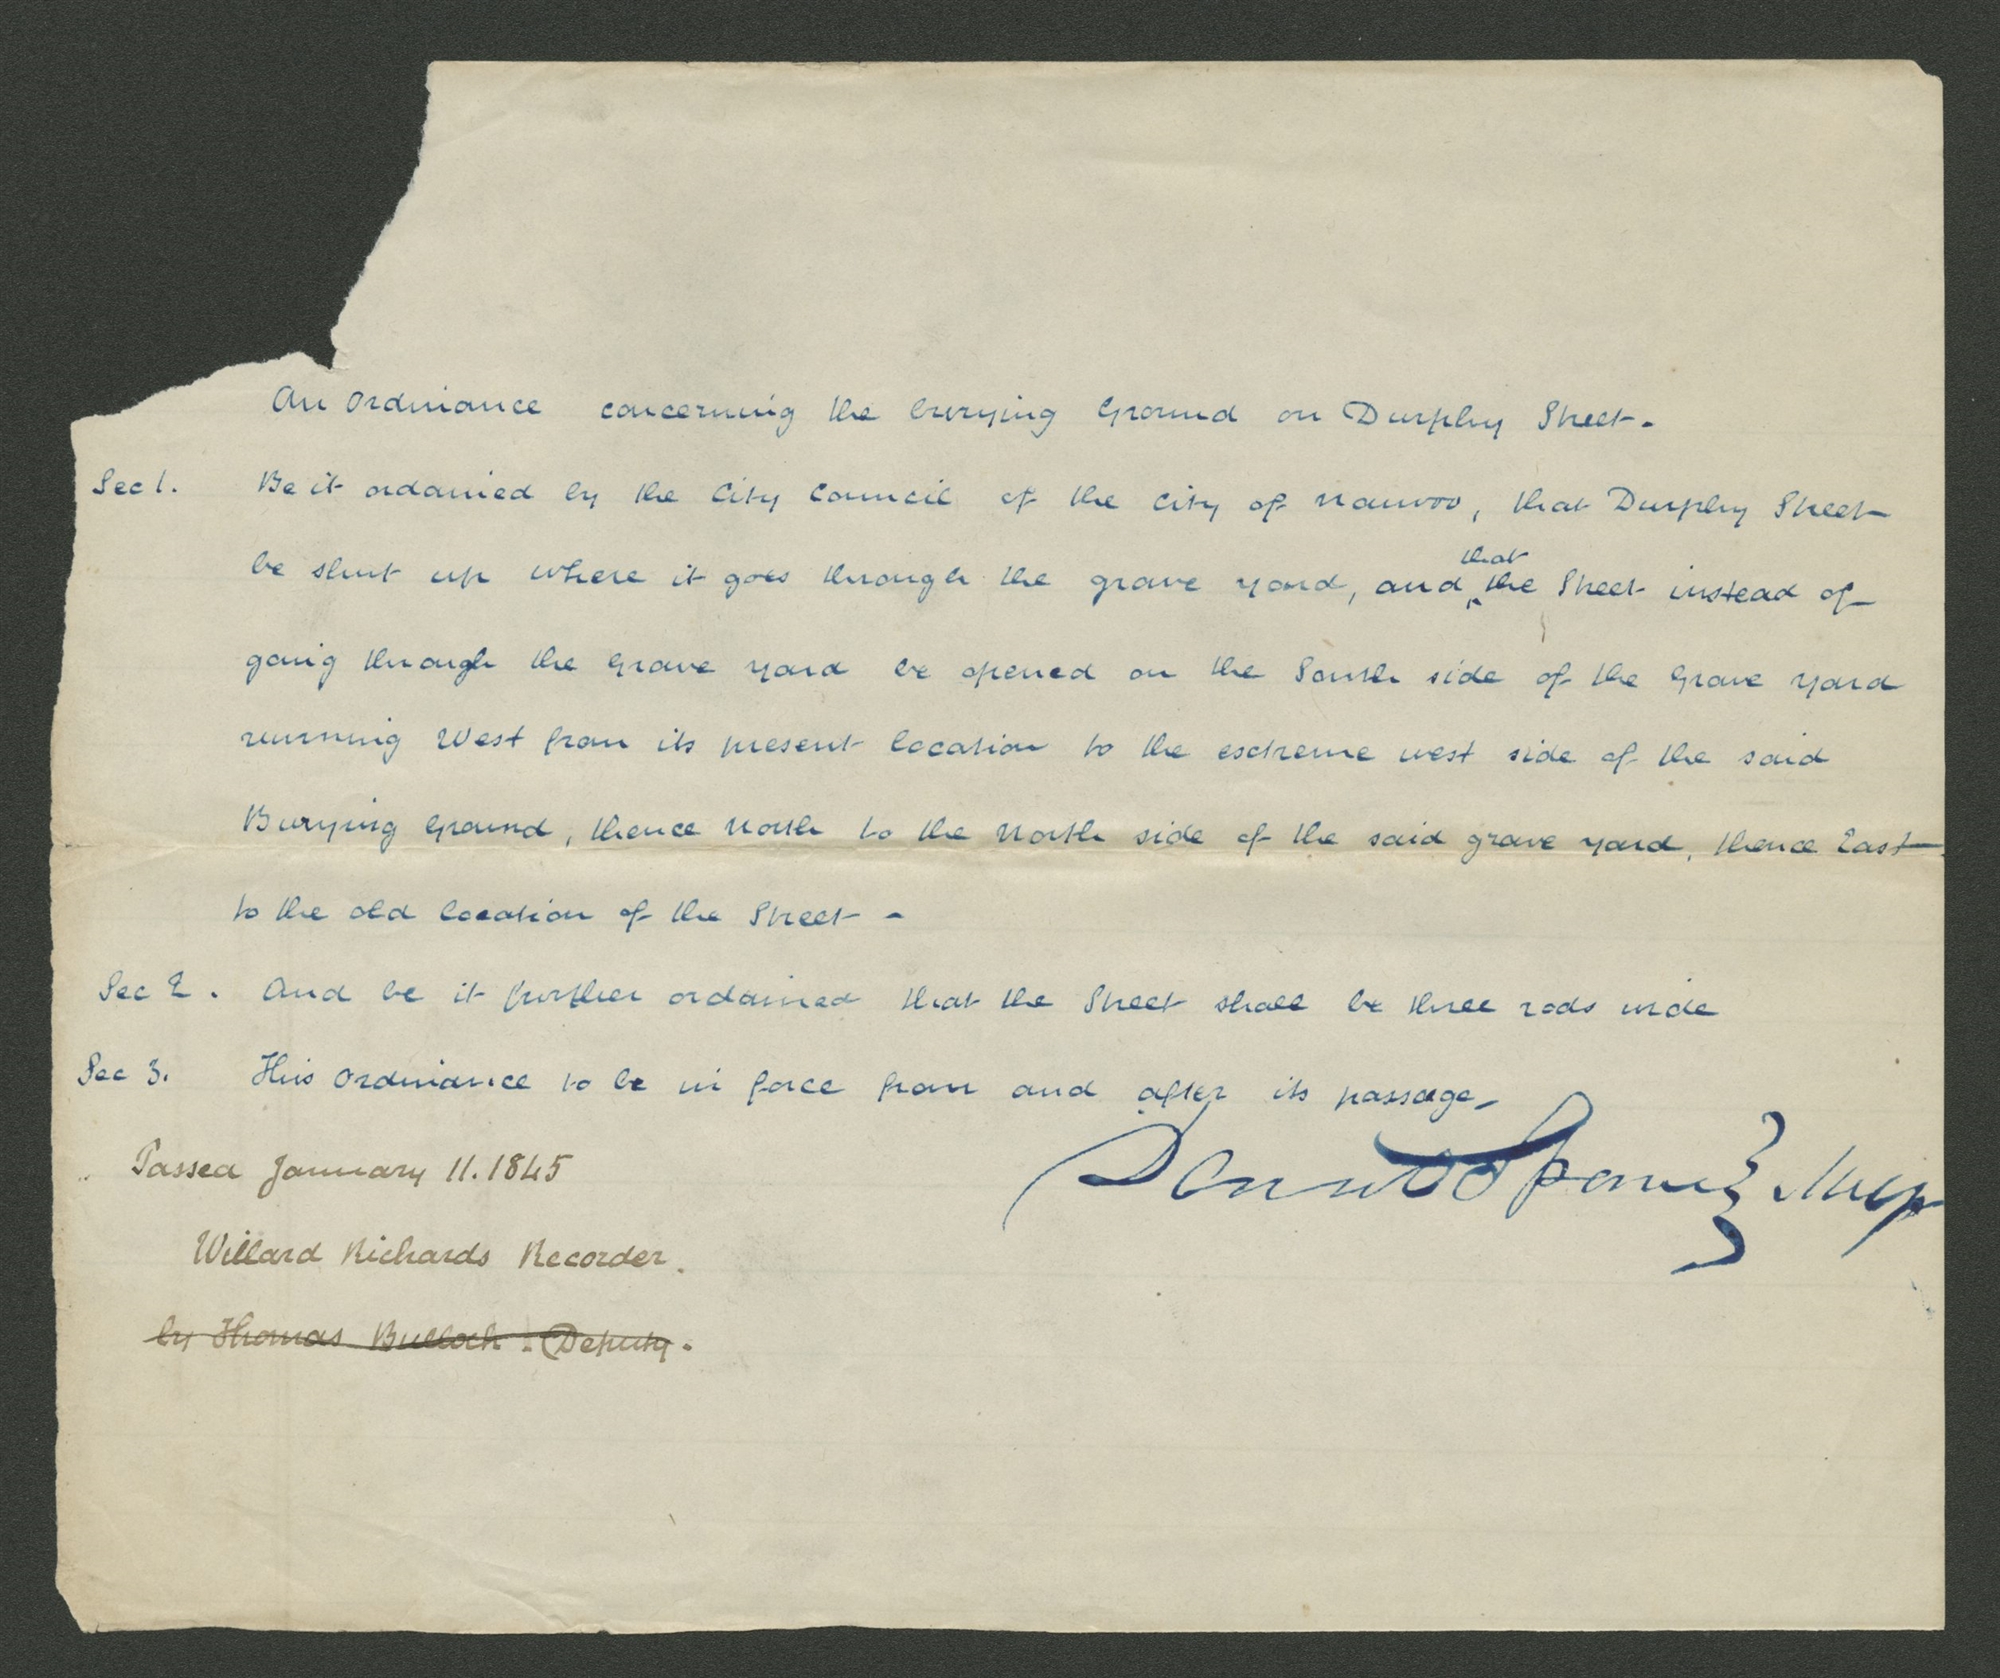 An Ordinance concerning the burying Ground on Durphy Street.
Sec 1. Be it ordained by the City Council of the City of Nauvoo, that Durphy Street
be shut up where it goes through the grave yard, and ^that the Street instead of
going through the Grave yard be opened on the South side of the Grave yard
running West from its present location to the extreme west side of the said
Burying Ground, thence North to the North side of the said grave yard, thence East
to the old location of the Street -
Sec 2. And be it further ordained that the Street shall be three rods wide
Sec 3. This Ordinance to be in force from and after its passage.
Daniel Spencer Mayor
Passed January 11. 1845
Willard Richards Recorder.
by Thomas Bullock. Deputy.